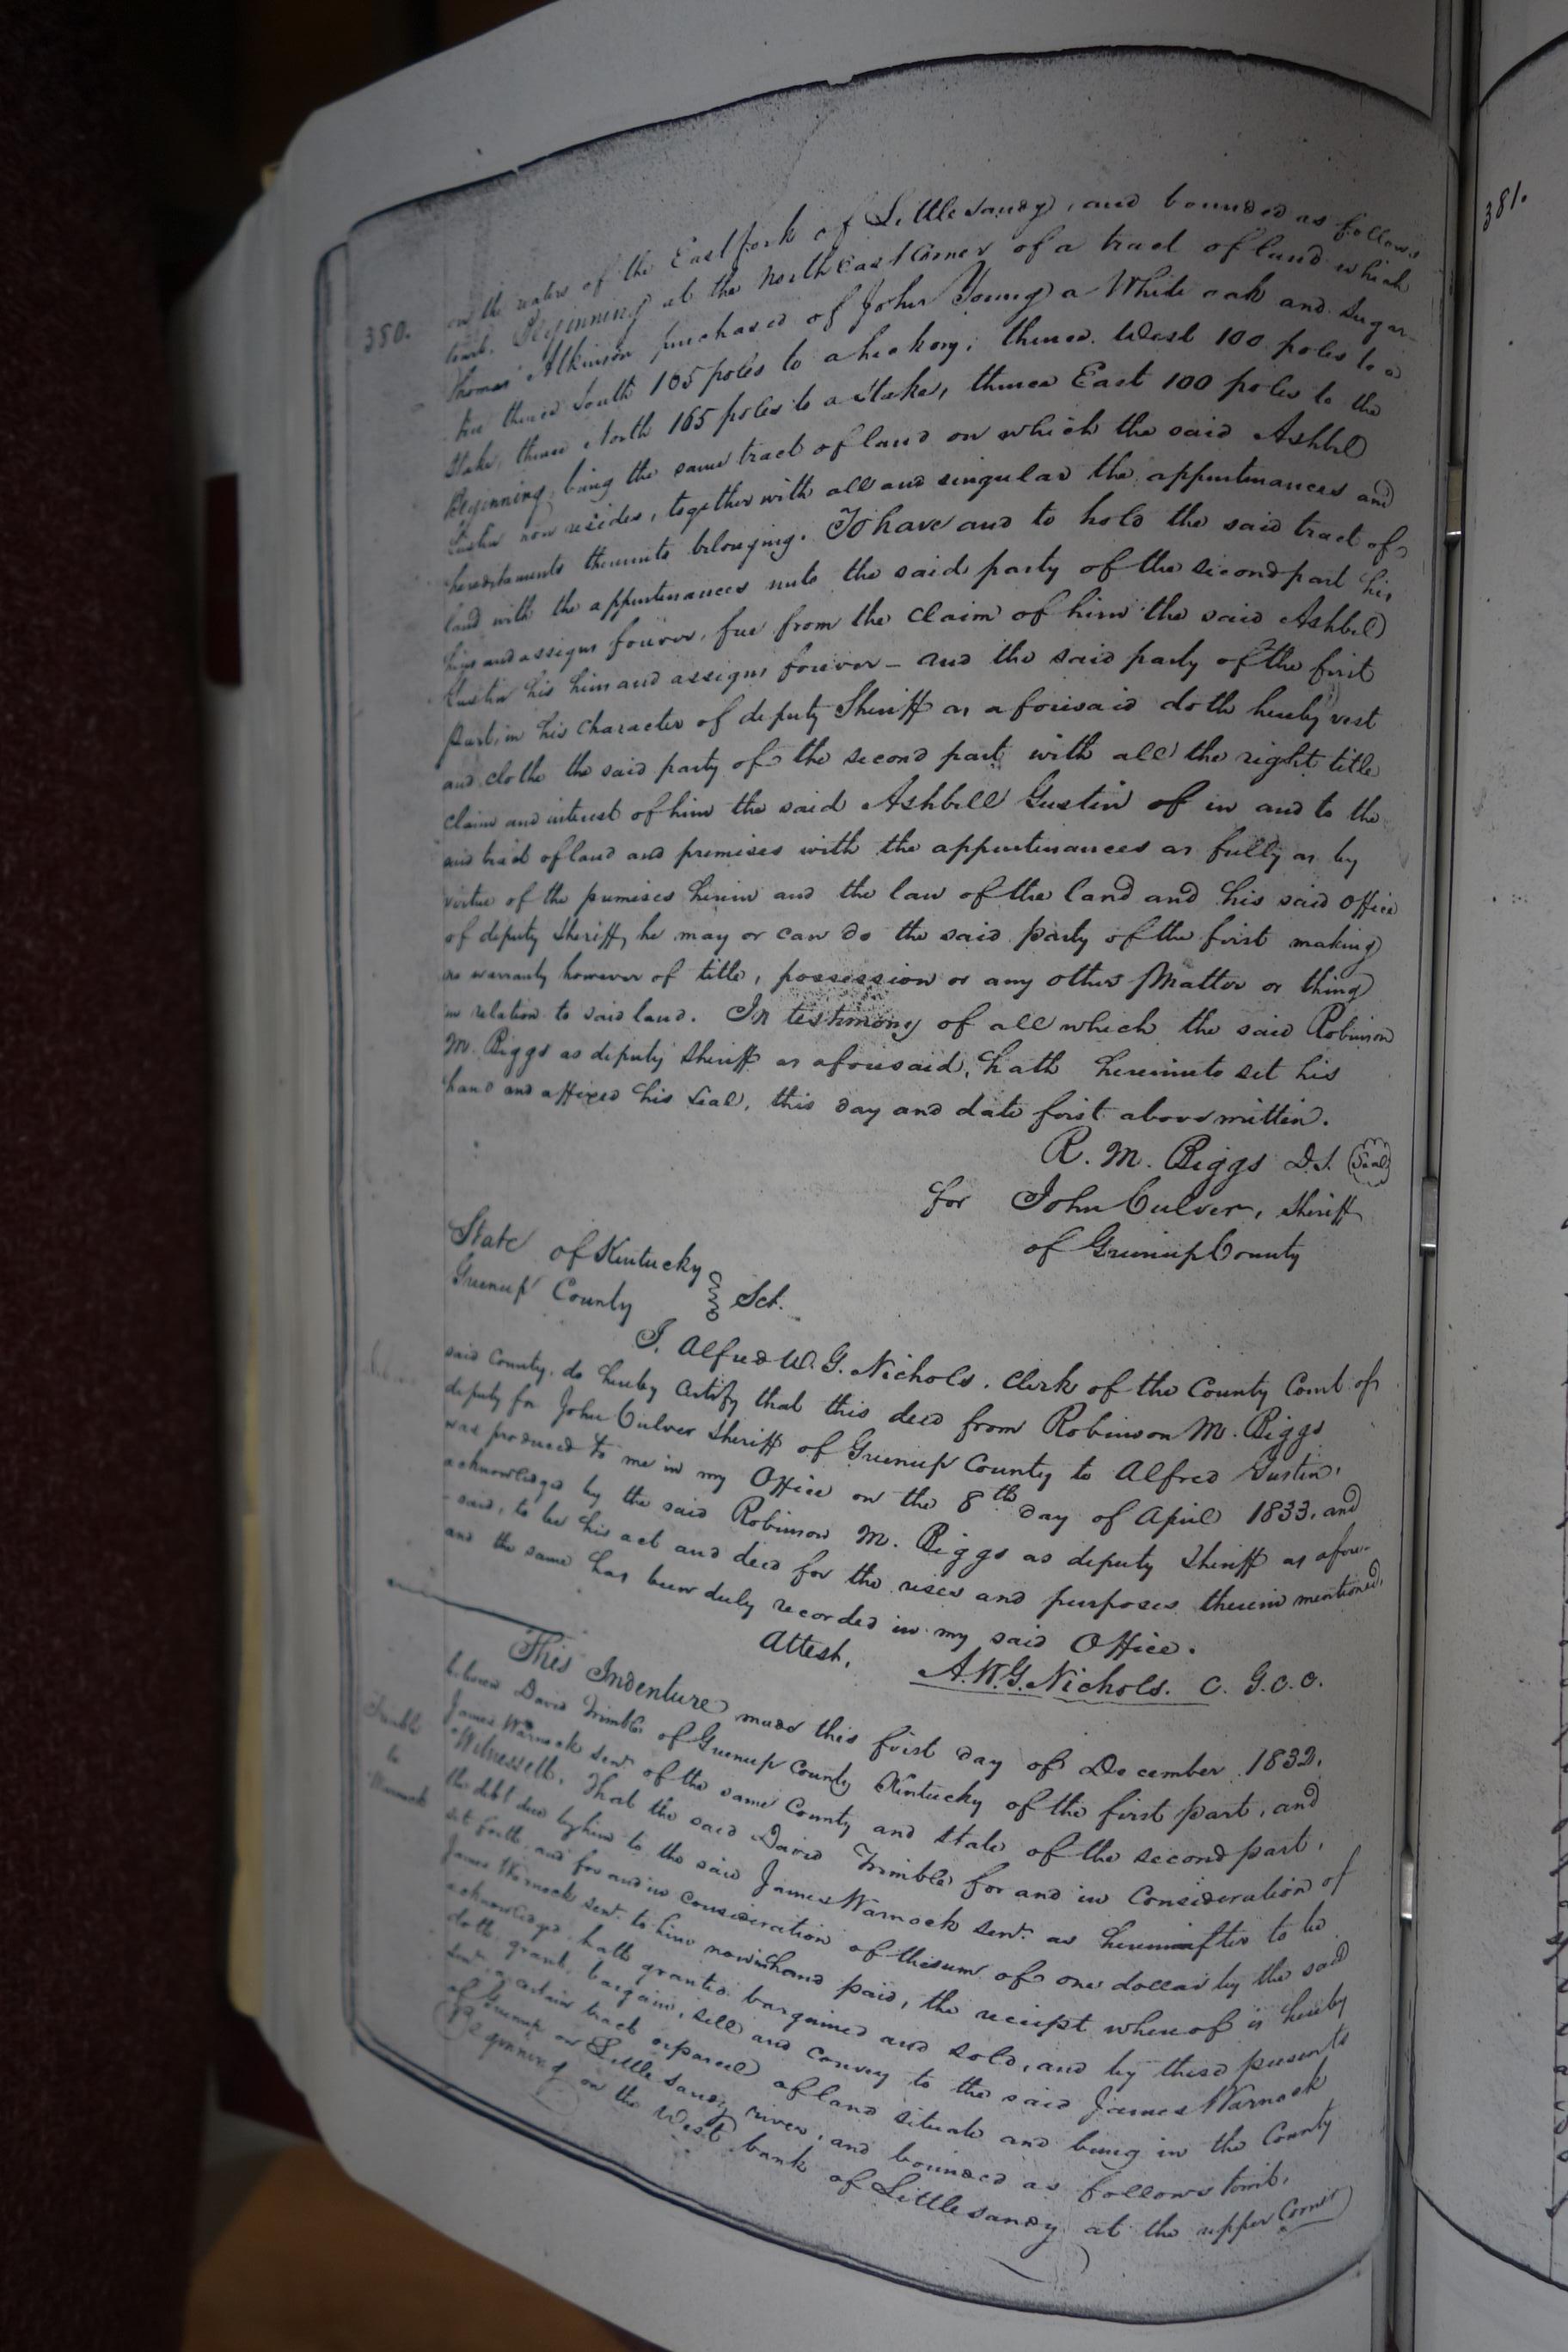 380.
on the waters of the East fork of Little Sandy, and bounded as follows
towit. Beginning at the North East Corner of a tract of land which
Thomas Atkinson purchased of John Young a White oak and Sugar
tree thence South 165 poles to a hickory; thence West 100 poles to a
Stake, thence North 165 poles to a Stake, thence East 100 poles to the
Beginning, being the same tract of land on which the said Ashbel
Gustin now resides, together with all and singular the appurtinances and
hereditaments thereunto belonging. To have and to hold the said tract of
land with the appurtinances unto the said party of the second part his
heirs and assigns forever, free from the claim of him the said Ashbel
Gustin his heirs and assigns forever – and the said party of the first
part, in his character of deputy Sheriff as aforesaid doth hereby vest
and clothe the said party of the second part with all the right title
claim and interest of him the said Ashbell Gustin of in and to the
said tract of land and premises with the appurtinances as fully as by
virtue of the premises herein and the law of the land and his said Office
of deputy Sheriff, he may or can do the said party of the first making
no warranty however of title, possession or any other Matter or thing
in relation to said land. In testimony of all which the said Robinson
M. Biggs as deputy Sheriff as aforesaid, hath hereunto set his
hand and affixed his Seal, this day and date first above written.
R. M. Biggs D.S. Seal
for John Culver, Sheriff
of Greenup County
State of Kentucky
Greenup County Sct.
I, Alfred W. G. Nichols, Clerk of the County Court of
said County, do hereby Certify that this deed from Robinson M. Biggs
deputy for John Culver Sheriff of Greenup County to Alfred Gustin,
was produced to me in my Office on the 8th day of April 1833, and
acknowledged by the said Robinson M. Biggs as deputy Sheriff as afore-
-said, to be his act and deed for the uses and purposes therein mentioned,
and the same has been duly recorded in my said Office.
Attest, A.W.G. Nichols. C. G. C. C.
This Indenture made this first day of December 1832,
between David Trimble of Greenup County Kentucky of the first part, and
James Warnock Senr. of the same County and State of the second part,
Trimble
to
Warnock
Witnesseth, That the said David Trimble for and in Consideration of
the debt due by him to the said James Warnock Senr. as hereinafter to be
set forth, and for and in consideration of the sum of one dollar by the said
James Warnock Senr. to him now in hand paid, the receipt whereof is hereby
acknowledged, hath granted bargained and sold, and by these presents
doth grant, bargain, sell and convey to the said James Warnock
Senr. a certain tract or parcel of land situate and being in the County
of Greenup on Little Sandy river, and bounded as follows towit,
Beginning on the West bank of Little Sandy at the upper Corner
381.